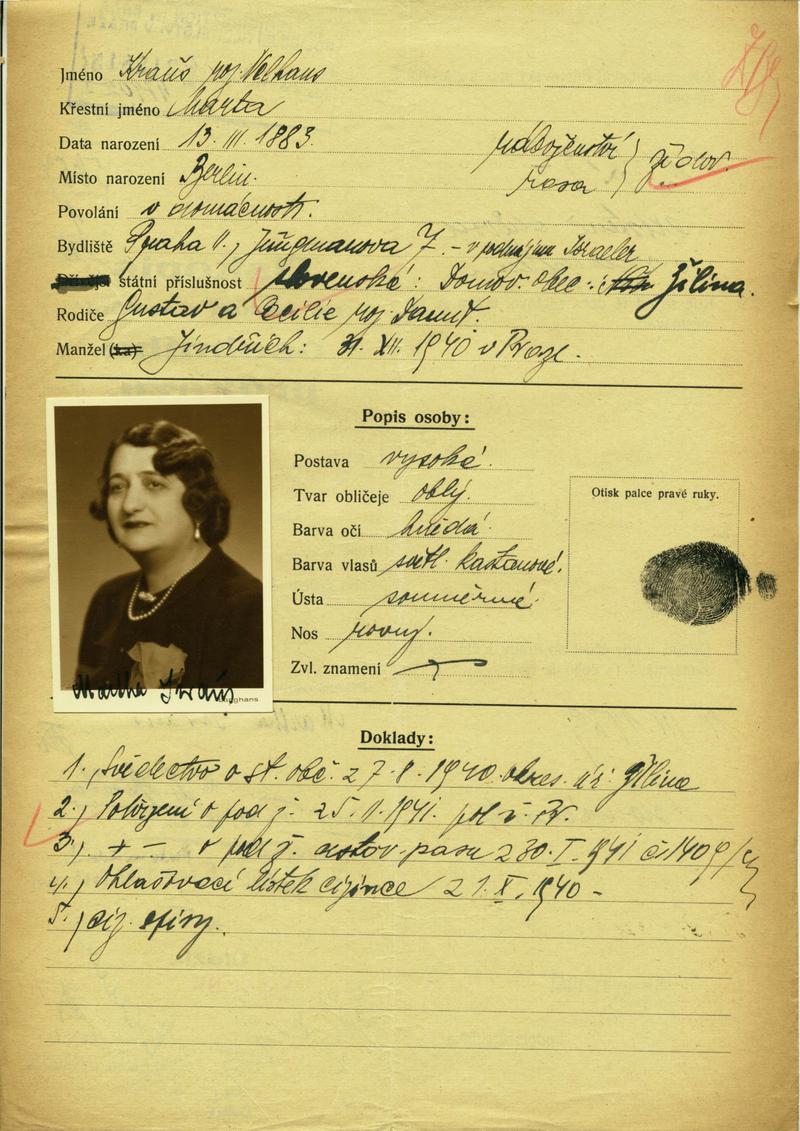 Jméno Kraus roz. Velhans
Křestní jméno Marta
Data narození 13. III. 1883.
náboženství } židov.
rasa
Místo narození Berlin.
Povolání v domácnosti.
Bydliště Praha II., Jungmanova 7. - v podnájmu Israeler
Dřívější státní příslušnost slovenská: Domov. obec: Žilina.
Rodiče Gustav a Cecilie roz.
Manžel (ka) Jindřich: 31. XII. 1940 v Praze.
Popis osoby:
Postava vysoká.
Tvar obličeje oblý.
Barva očí hnědá.
Barva vlasů světl. kaštanové.
Ústa souměrné.
Nos rovný.
Zvl. znamení
Otisk palce pravé ruky.
Martha Kraus
Doklady:
1., Svědectvo o st. obč. z 7. 8. 1940. okres. úř. Žilina
2., Potvrzení o pod. ž. 25. 1. 1941. pol. ř. Pr.
3., -"- o pod. ž. cestov. pasu z 30. I. 1941 č. 1409/41
4., Ohlašovací lístek cizince z 1. X. 1940 -
5., ciz.